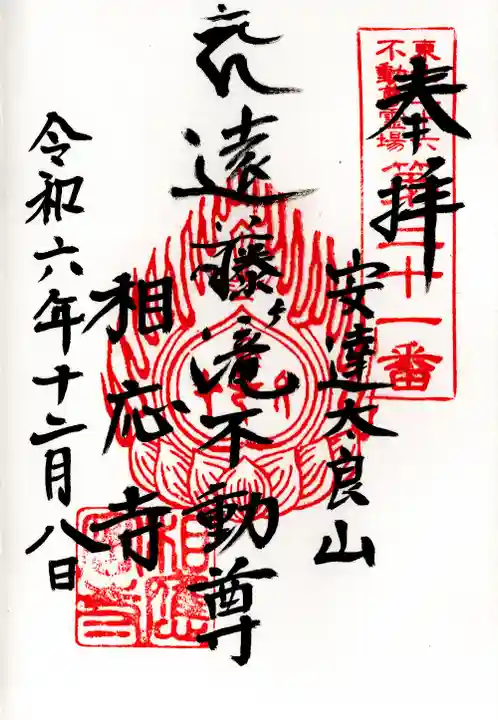 奉拝
東北三十六
不動尊霊場
第二十一番
安達太良山
遠藤ヶ滝不動尊
相応寺
令和六年十二月八日